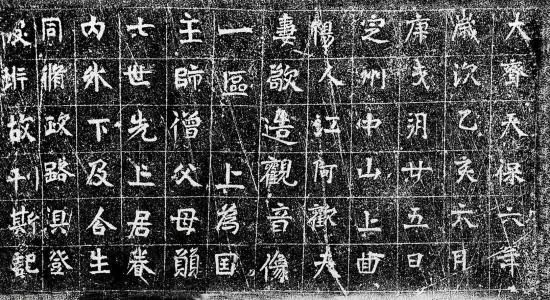 大齊天保六年
歲次乙亥六月
庚戌朔廿五日
定州中山上曲
楊人江阿歡夫
妻歌造觀音像
一區 上為囯
主師僧父母願
七世先亡居眷
内外下及合生
同脩政路俱登
彼岸故刊斯記